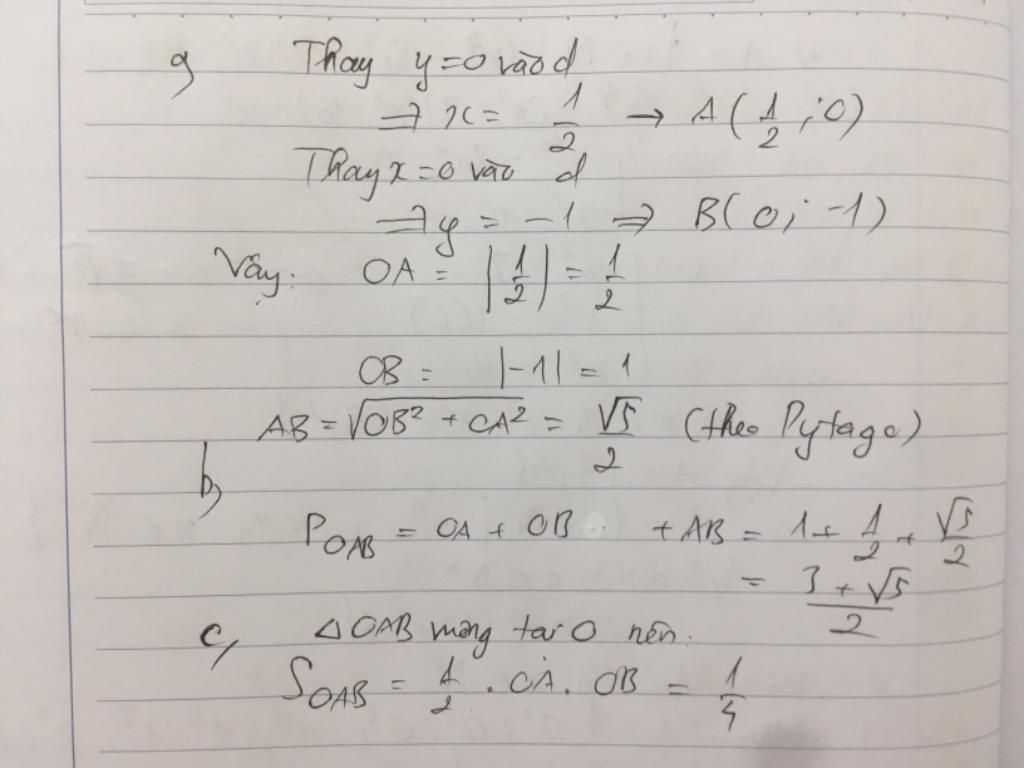 a) Thay y=0 vào d
⇒ x = 1/2 → A(1/2 ; 0)
Thay x=0 vào d
⇒ y = -1 ⇒ B(0; -1)
Vậy: OA = |1/2| = 1/2
OB = |-1| = 1
AB = √(OB² + OA²) = √5/2 (theo Pytago)
b)
P_OAB = OA + OB + AB = 1 + 1/2 + √5/2
= (3 + √5)/2
c) △OAB vuông tại O nên.
S_OAB = 1/2 . OA . OB = 1/4